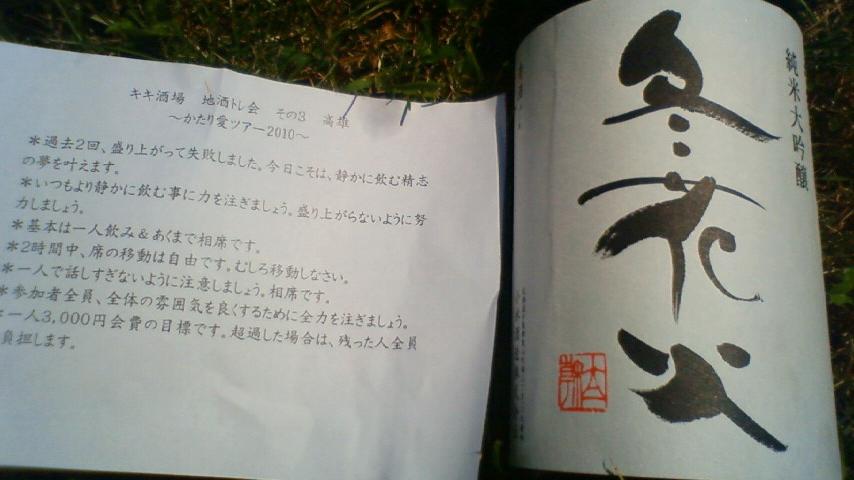 キキ酒場 地酒トレ会 その3 高雄
~かたり愛ツアー2010~
*過去2回、盛り上がって失敗しました。今日こそは、静かに飲む精志
の夢を叶えます。
*いつもより静かに飲む事に力を注ぎましょう。盛り上がらないように努
力しましょう。
*基本は一人飲み&あくまで相席です。
*2時間中、席の移動は自由です。むしろ移動しなさい。
*一人で話しすぎないように注意しましょう。相席です。
*参加者全員、全体の雰囲気を良くするために全力を注ぎましょう。
*一人3,000円会費の目標です。超過した場合は、残った人全員
負担します。
純米大吟醸
冬花火